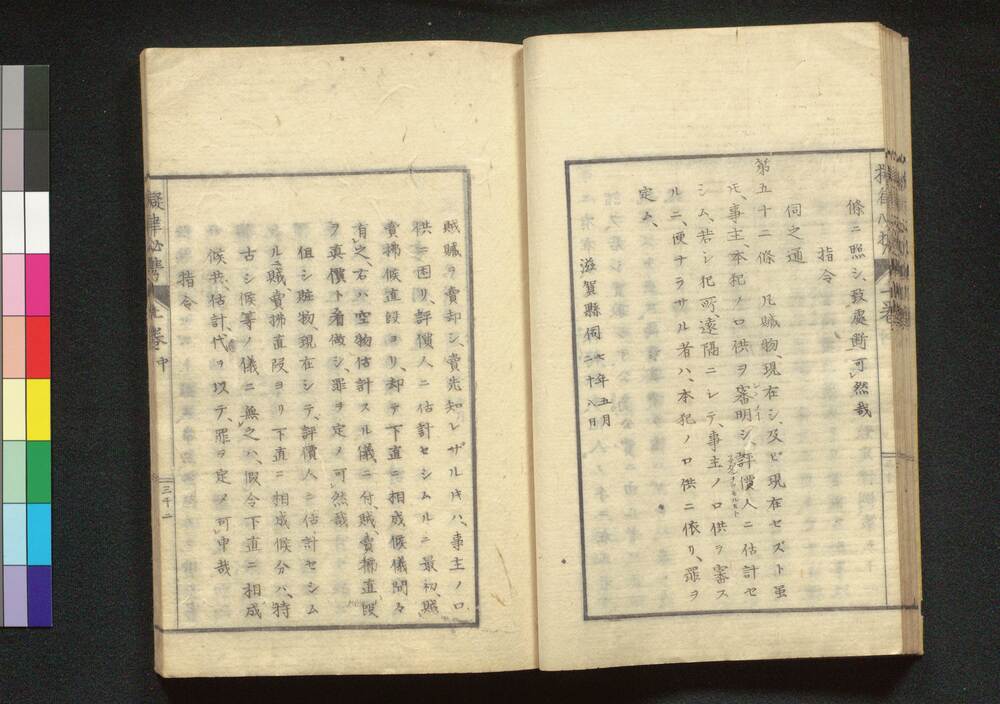 條ニ照シ致處断可然哉
指令
伺之通
第五十二條 凡贓物、現在シ、及ビ現在セズト雖
モ、事主、本犯ノ口供ヲ審明シ、評價人ニ估計セ
シム、若シ犯所、遠隔ニシテ、事主ノ口供ヲ審ス
ルニ便ナラサル者ハ、本犯ノ口供ニ依リ、罪ヲ
定ム、
滋賀縣伺 七年五月二十八日
賊贓ヲ賣却シ、賣先知レザルトキハ、事主ノ口
供ニ因リ、評價人ニ估計セシムルニ最初、賊
賣拂候直段ヨリ、却テ下直ニ相成候儀間々
有之、右ハ空物估計スル儀ニ付、賊、賣拂直段
ヲ真價ト看做シ、罪ヲ定メ可然哉
但シ贓物、現在シテ、評價人ニ估計セシム
ルニ賊、賣拂直段ヨリ下直ニ相成候分ハ、特
古シ候等ノ儀ニ無之ハ、假令下直ニ相成
候共、估計、代價ヲ以テ、罪ヲ定メ可申哉
指令
擬律必携 卷中
三十二